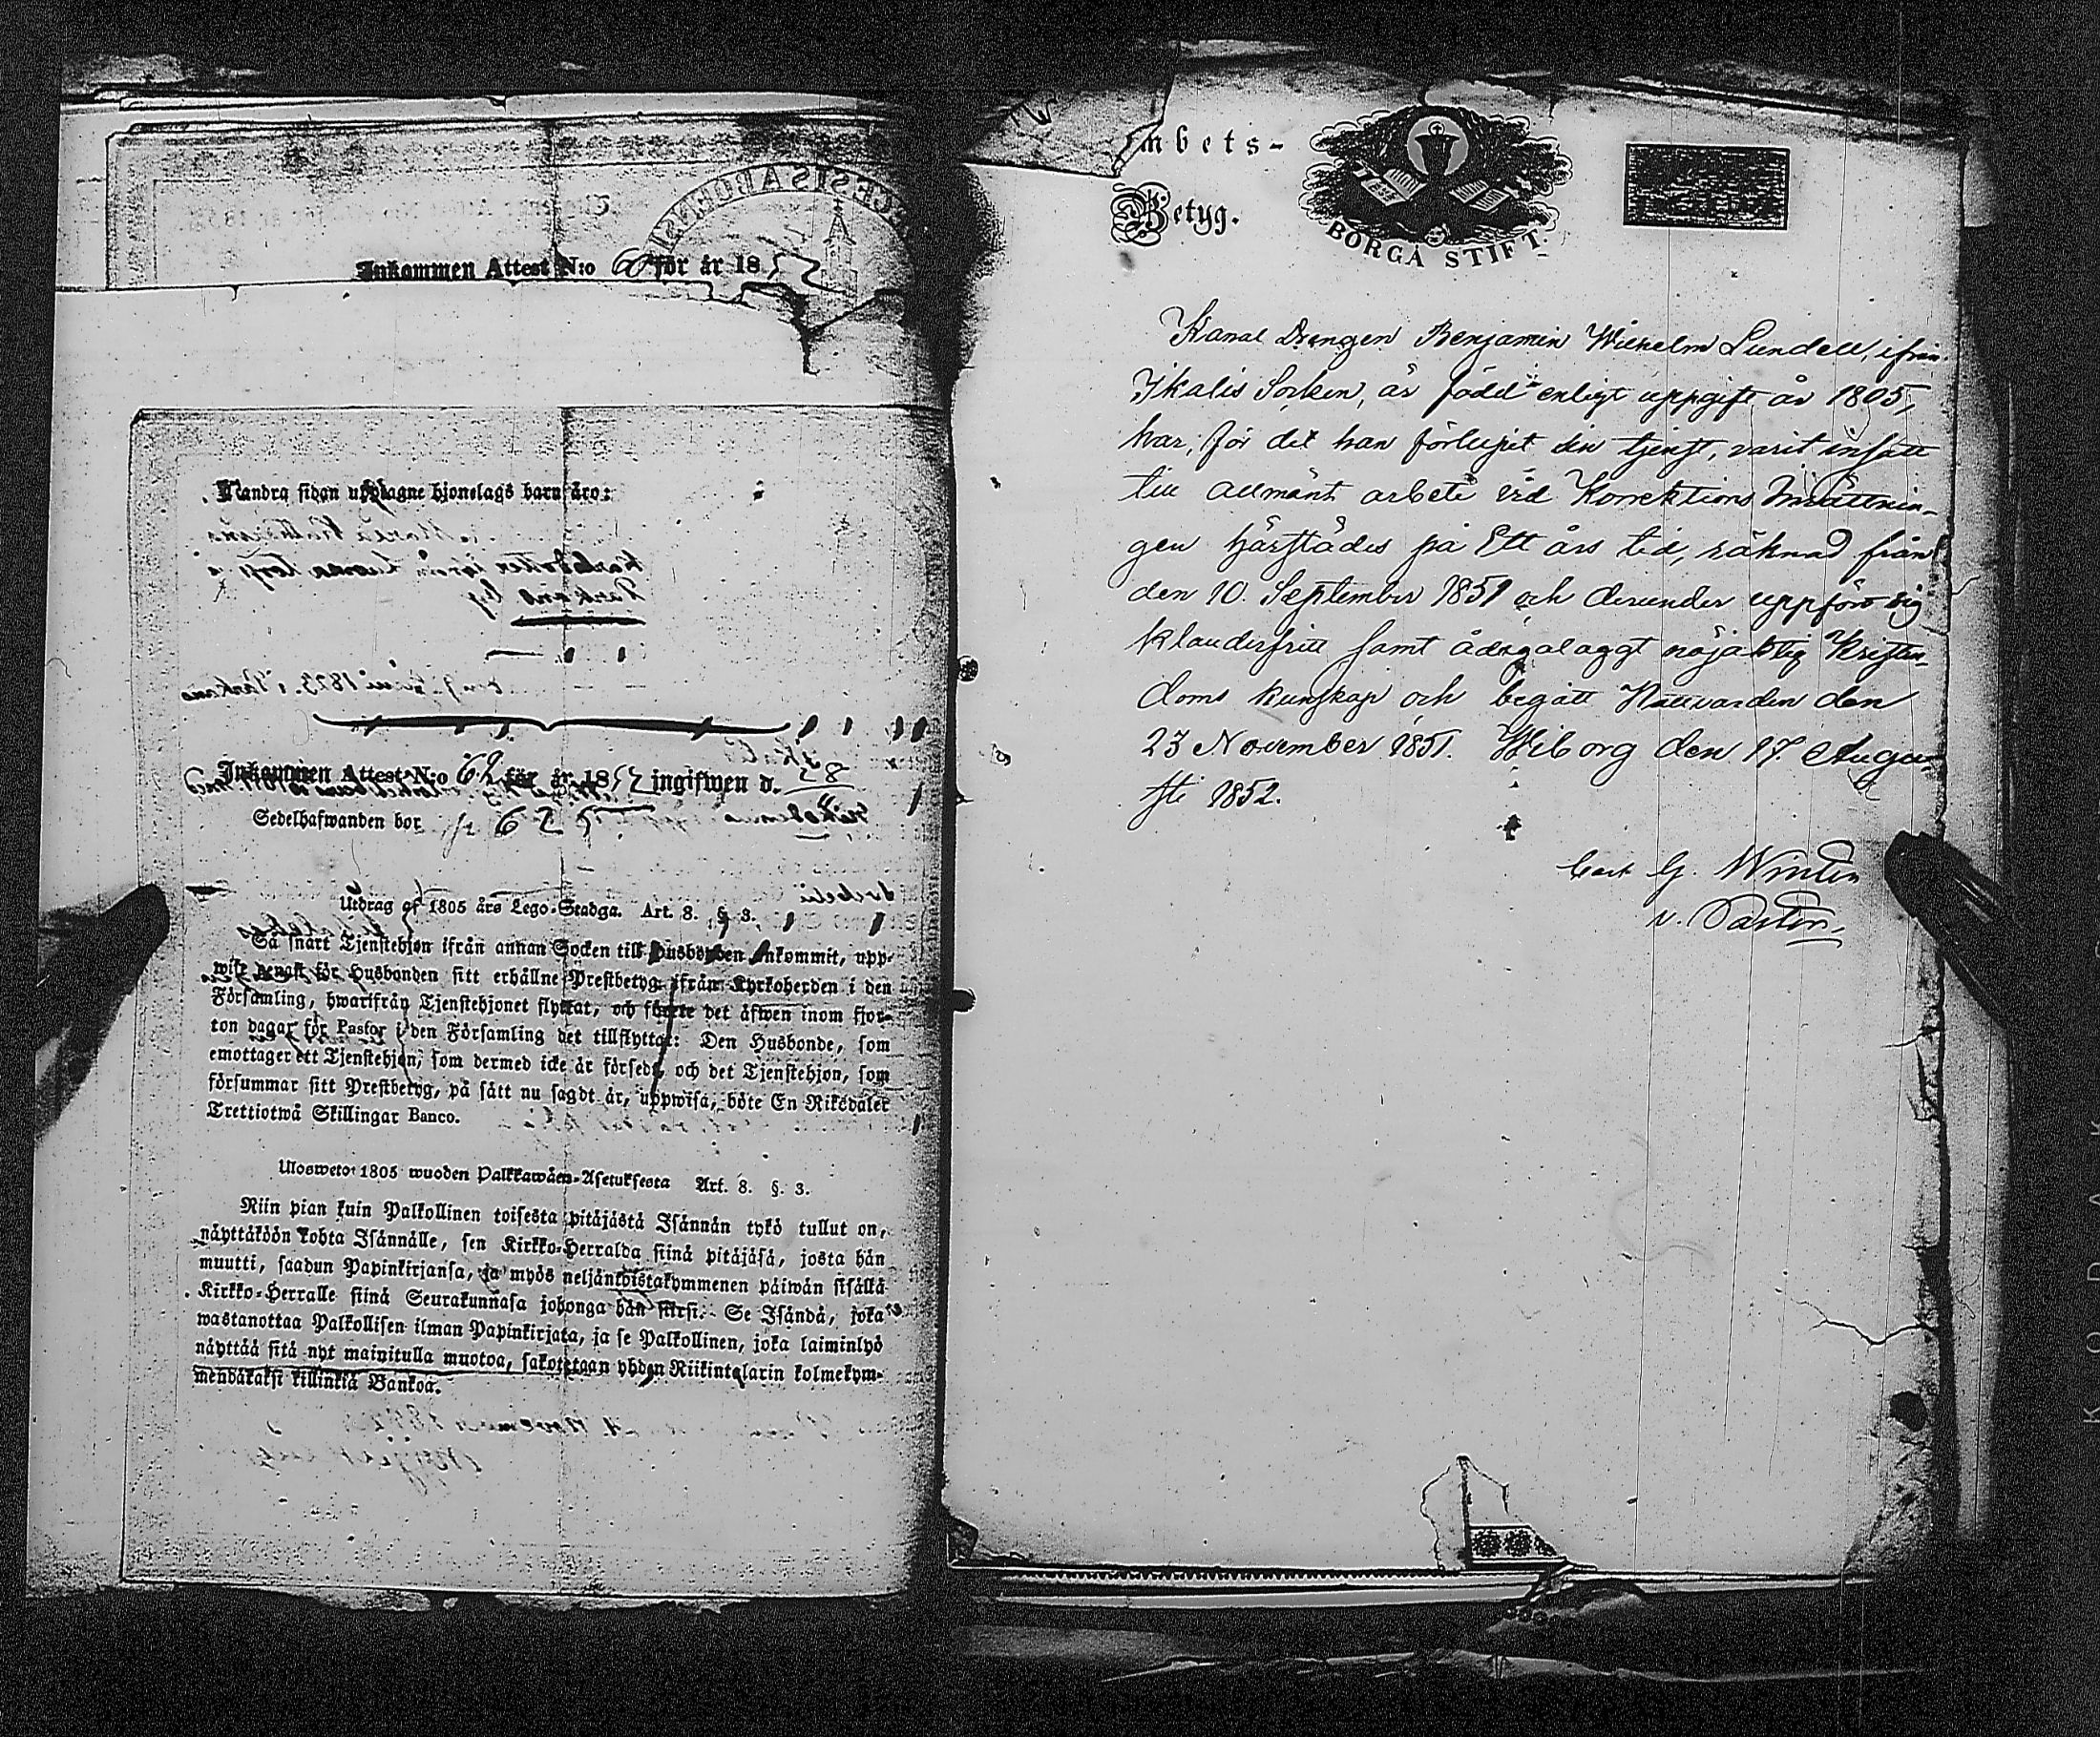 Inkommen Attest N:o 60 för år 1852
. Å andra sidan upptagne hjonelags barn äro:
Inkommen Attest N:o 62 för år 1852 ingifwen d.
Sedelhafwanden bor
Utdrag af 1805 års Lego-Stadga. Art. 8. § 3.
Så snart Tjenstehjon ifrån annan Socken till Husbonden ankommit, upp-
wise genast för Husbonden sitt erhållne Prestbetyg ifrån Kyrkoherden i den
Församling, hwarifrån Tjenstehjonet flyttat, och förete det äfwen inom fjor-
ton dagar för Pastor i den Församling det tillflyttat: Den Husbonde, som
emottager ett Tjenstehjon, som dermed icke är försedt, och det Tjenstehjon, som
försummar sitt Prestbetyg, på sätt nu sagdt är, uppwisa, böte En Riksdaler
Trettiotwå Skillingar Banco.
Uloswetot 1805 wuoden Palkkawäen-Asetuksesta Art. 8. §. 3.
Niin pian kuin Palkollinen toisesta pitäjästä Isännän tykö tullut on,
näyttäköön kohta Isännälle, sen Kirkko-Herralda siinä pitäjäsä, josta hän
muutti, saadun Papinkirjansa, ja myös neljäntoistakymmenen päiwän sisällä
Kirkko-Herralle siinä Seurakunnasa johonga hän siirsi. Se Isändä, joka
wastanottaa Palkollisen ilman Papinkirjata, ja se Palkollinen, joka laiminlyö
näyttää sitä nyt mainitulla muotoa, sakotetaan yhden Riikintalarin kolmekym-
mendäkaksi killinkiä Bankoa.
mbets-
Betyg.
BORGÅ STIFT.
Kanal Drengen Benjamin Wilhelm Lundell, ifrån
Ikalis Socken, är född enligt uppgift år 1805,
har, för det han förlupit sin tjenst, varit insatt
till allmänt arbete vid Korrektions Inrättnin-
gen härstädes på Ett års tid, räknad från
den 10. September 1851 och derunder uppfört sig
klanderfritt samt ådagalaggt nöjaktig Kristen-
doms kunskap och begått Nattvarden den
23 November 1851. Wiborg den 17. Augu-
sti 1852.
Carl G. Winter
v. Pastor.
KODAK